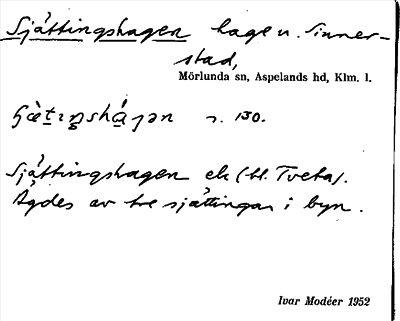 Sjättingshagen hage u. Sinner-
stad,
Mörlunda sn, Aspelands hd, Klm. l.
s. 130.
Sjättingshagen ek (bl. Tveta).
Ägdes av tre sjättingar i byn.
Ivar Modéer 1952